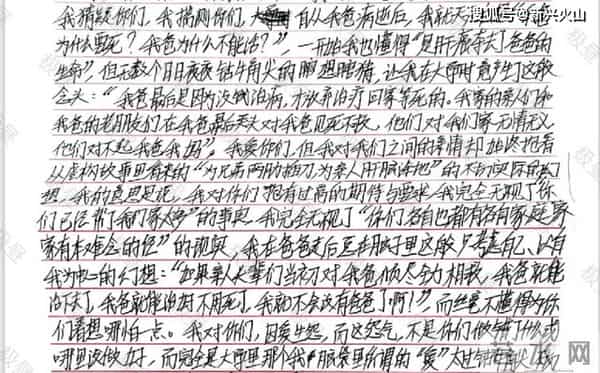 搜狐号@新兴火山
我猜疑你们，我揣测你们，自从我爸病逝后，我就天
为什么要死？我爸为什么不能活？”，一开始我也懂得“是肝癌夺去了爸爸的
生命”，但无数个日日夜夜钻牛角尖的瞎想瞎猜，让我在大学时竟产生了这般
念头：“我爸最后是因为没钱治病，才放弃治疗回家等死的。我家的亲人们和
我爸的老朋友们在我爸最后关头对我爸见死不救，他们对我们家无情无义
他们对不起我爸我妈”。我爱你们，但我对我们之间的亲情却始终抱着
从虚构故事里看来的“为兄弟两肋插刀，为亲人肝脑涂地”的不切实际的幻
想，我的意思是说，我对你们抱有过高的期待与要求，我完全无视了“你
们已经帮了我们家太多”的事实，我完全无视了“你们各自也都有各自家庭，家
家有本难念的经”的现实，我在爸爸走后是在用脑子里这般只考虑自己、以自
我为中心的幻想：“如果亲人长辈们当初对我爸倾尽全力相救，我爸就能
治下去了，我爸就能治好不用死了，我就不会没有爸爸了啊！”，而丝毫不懂得为你
们着想哪怕一点。我对你们，因爱生怨，而这怨气，不是你们做错了什么或
哪里没做好，而完全是大学里那个我脑袋里所谓的“爱”太过
极量